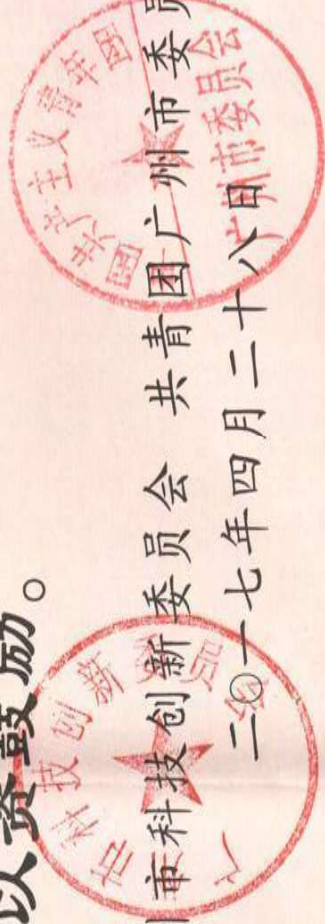 以资鼓励。
市科技创新委员会 共青团广州市委员
二〇一七年四月二十八日
市科技创新 员会
中国共产主义青年团
广州市委员会